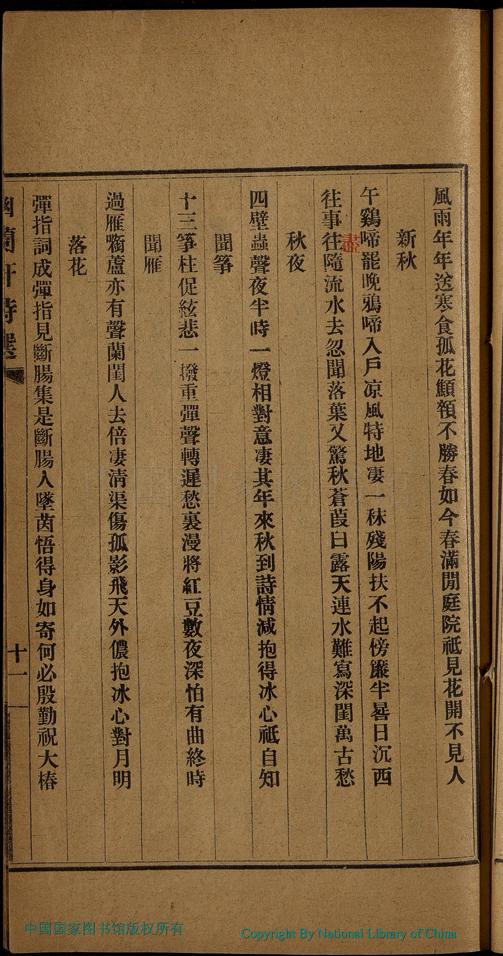 風雨年年送寒食孤花顦顇不勝春如今春滿閒庭院祗見花開不見人
新秋
午鷄啼罷晚鴉啼入戶凉風特地凄一秣殘陽扶不起傍簾半晷日沉西
往事往隨流水去忽聞落葉又驚秋蒼葭白露天連水難寫深閨萬古愁
盡
秋夜
四壁蟲聲夜半時一燈相對意凄其年來秋到詩情減抱得冰心祗自知
聞箏
十三箏柱促絃悲一撥重彈聲轉遲愁裏漫將紅豆數夜深怕有曲終時
聞雁
過雁啣蘆亦有聲蘭閨人去倍凄清渠傷孤影飛天外儂抱冰心對月明
落花
彈指詞成彈指見斷腸集是斷腸人墜茵悟得身如寄何必殷勤祝大椿
幽蘭軒詩選
十一
中国国家图书馆版权所有
Copyright By National Library of China